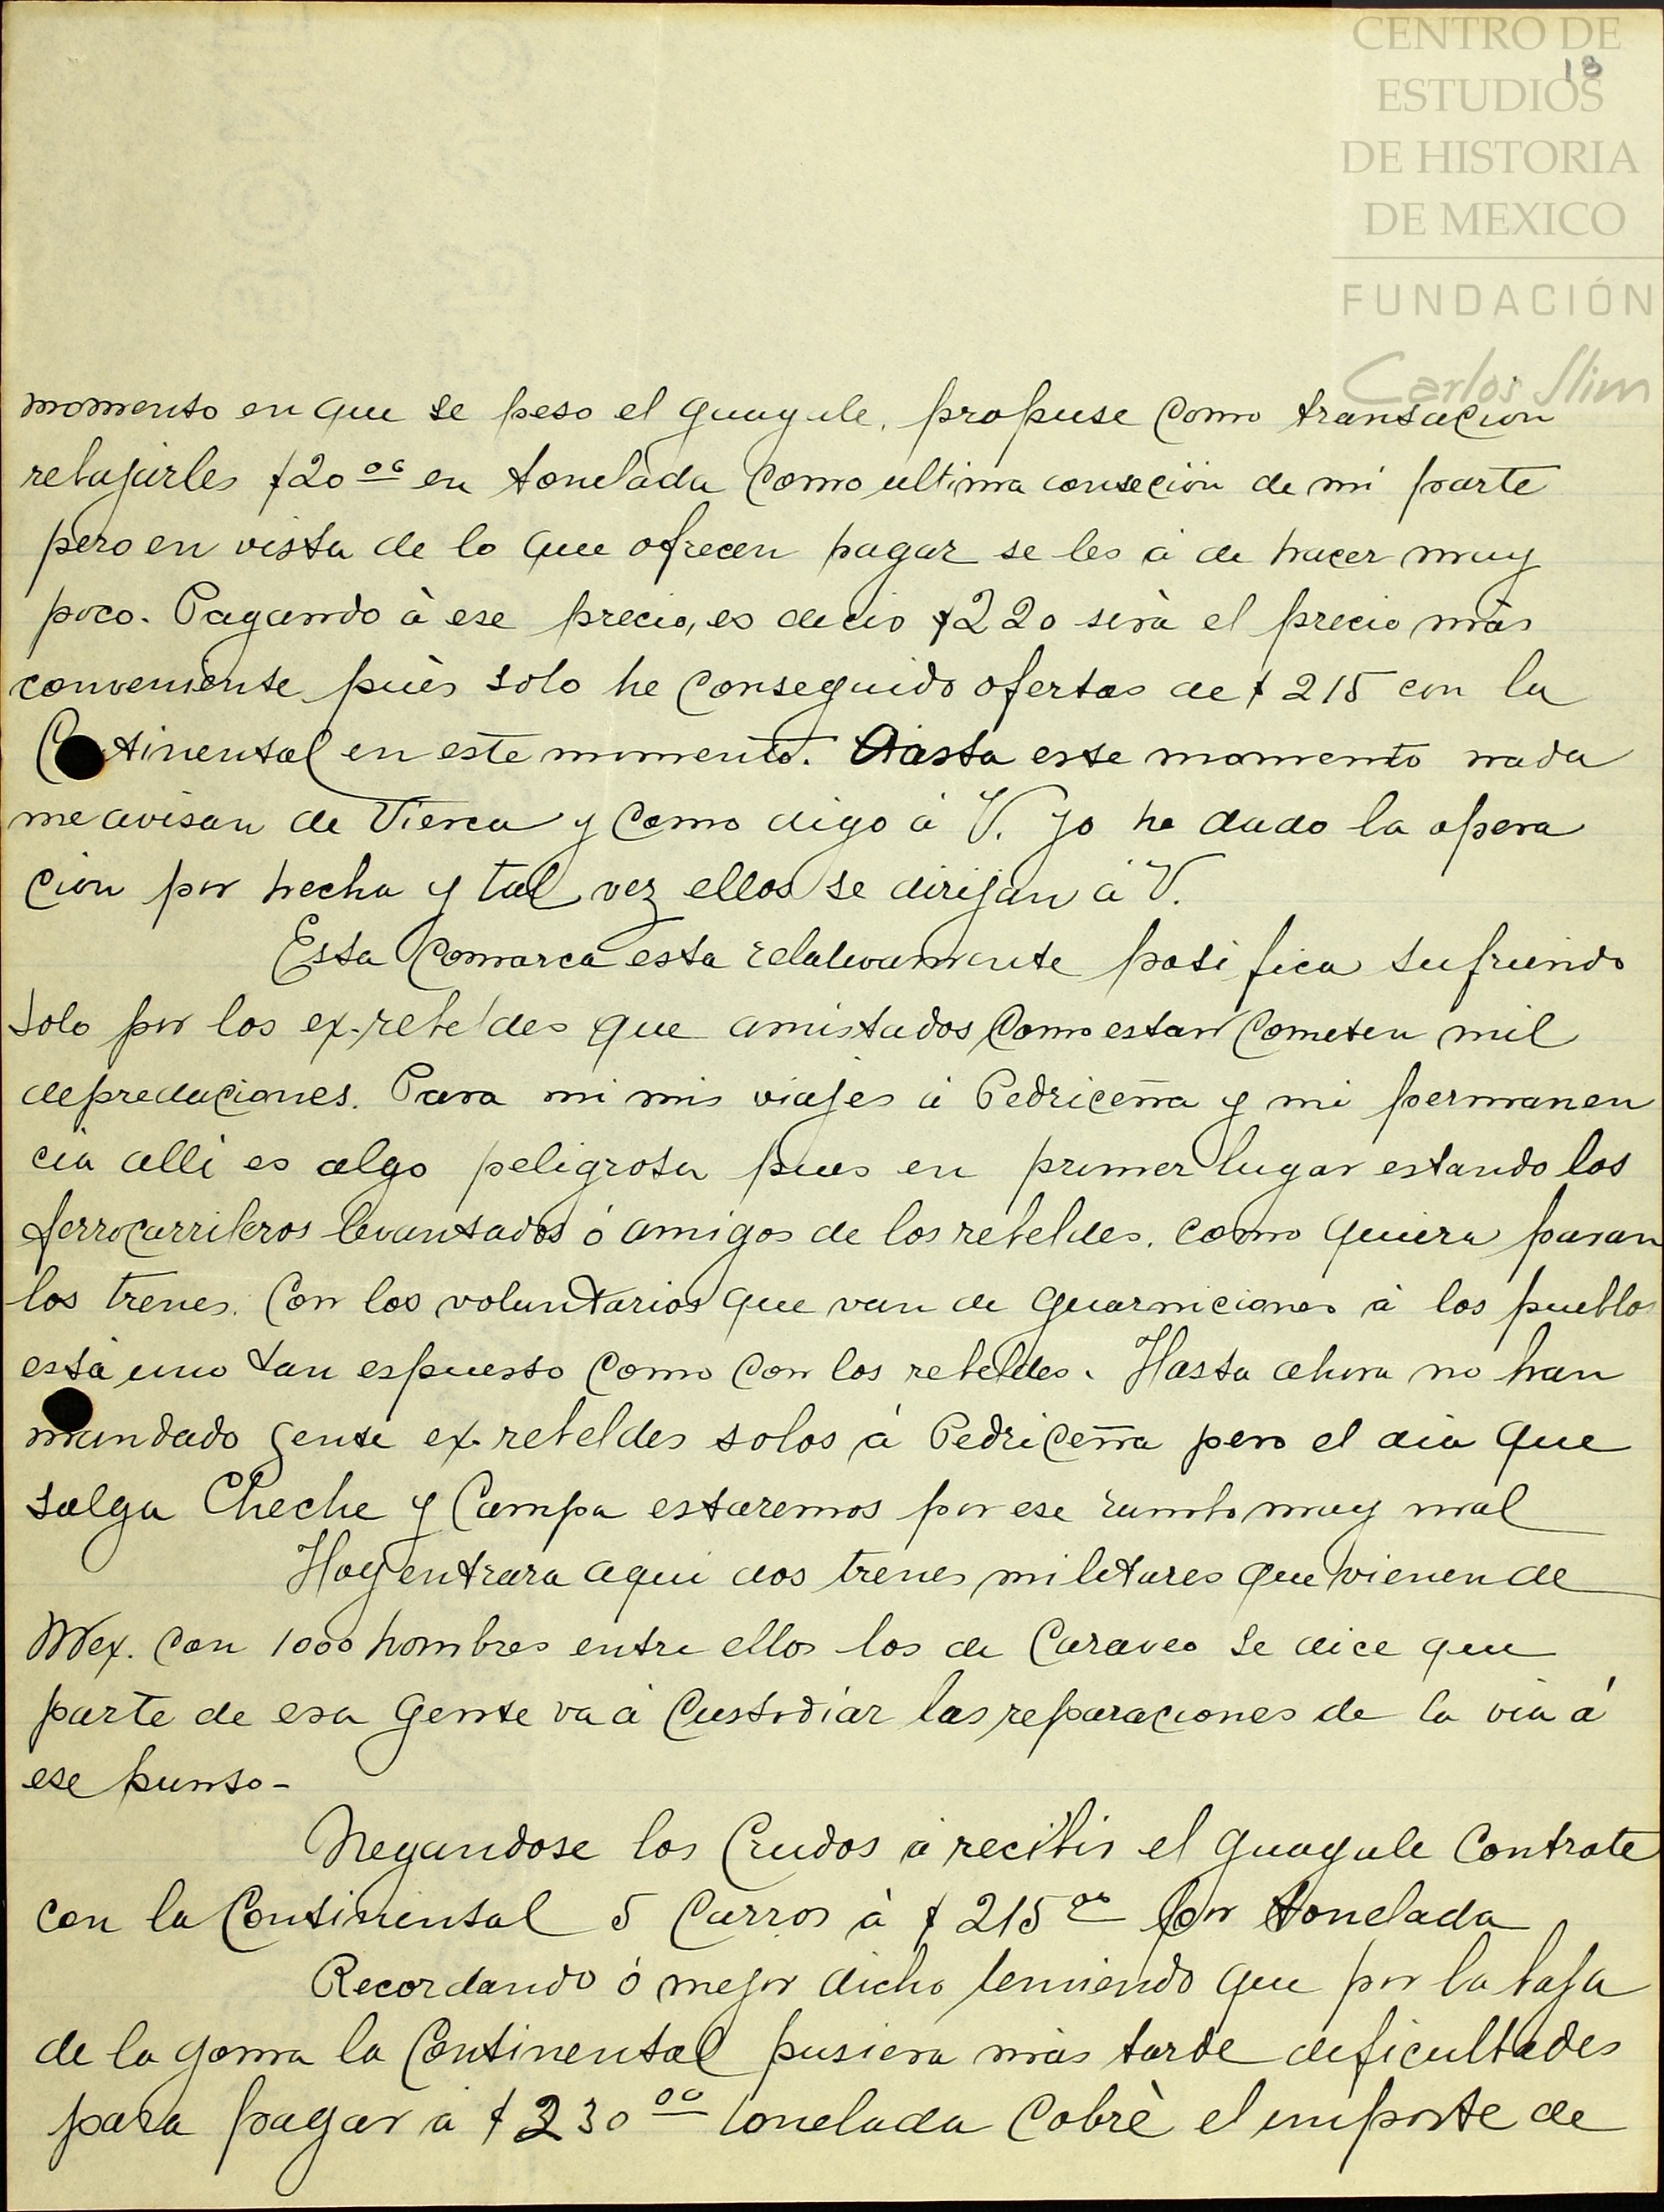 CENTRO DE
ESTUDIOS
DE HISTORIA
DE MEXICO
FUNDACIÓN
Carlos Slim
18
momento en que se peso el guayule, propuse como transacion
rebajarles $20 oo en tonelada como ultima conseción de mi parte
pero en vista de lo que ofrecen pagar se les á de hacer muy
poco. Pagando à ese precio, es decir $220 serà el precio màs
conveniente pués solo he conseguido ofertas de $215 con la
Continental en este momento. Hasta este momento nada
me avisan de Viesca y como digo á V. yo he dado la opera
cion por hecha y tal vez ellos se dirijan á V.
Esta Comarca esta relativamente pasifica sufriendo
solo por los ex-rebeldes que amistados como estan cometen mil
depredaciones. Para mi mis viajes á Pedriceña y mi permanen
cia alli es algo peligrosa pues en primer lugar estando los
ferrocarrileros levantados ó amigos de los rebeldes, como quiera paran
los trenes. Con los voluntarios que van de guarniciones á los pueblos
està uno tan espuesto como con los rebeldes. Hasta ahora no han
mandado gente ex-rebeldes solos á Pedriceña pero el dia que
salga Cheche y Campa estaremos por ese rumbo muy mal
Hoy entrara aqui dos trenes militares que vienen de
Mex. con 1000 hombres entre ellos los de Caraveo se dice que
parte de esa gente va á custodiar las reparaciones de la via á
ese punto-
Negandose los Crudos á recibir el guayule Contrate
con la Continental 5 Carros à $215 oo por tonelada
Recordando ó mejor dicho temiendo que por la baja
de la goma la Continental pusiera màs tarde dificultades
para pagar á $230 oo tonelada cobrè el importe de